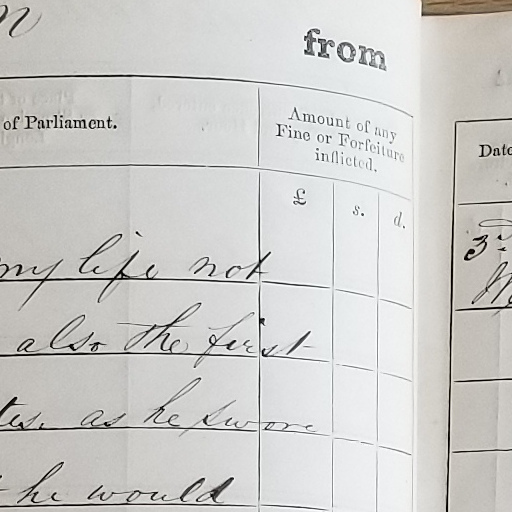 from
of Parliament.
Amount of any
Fine or Forfeiture
inflicted.
£ s. d.
my life not
also the first
as he swore
he would
Date
3rd